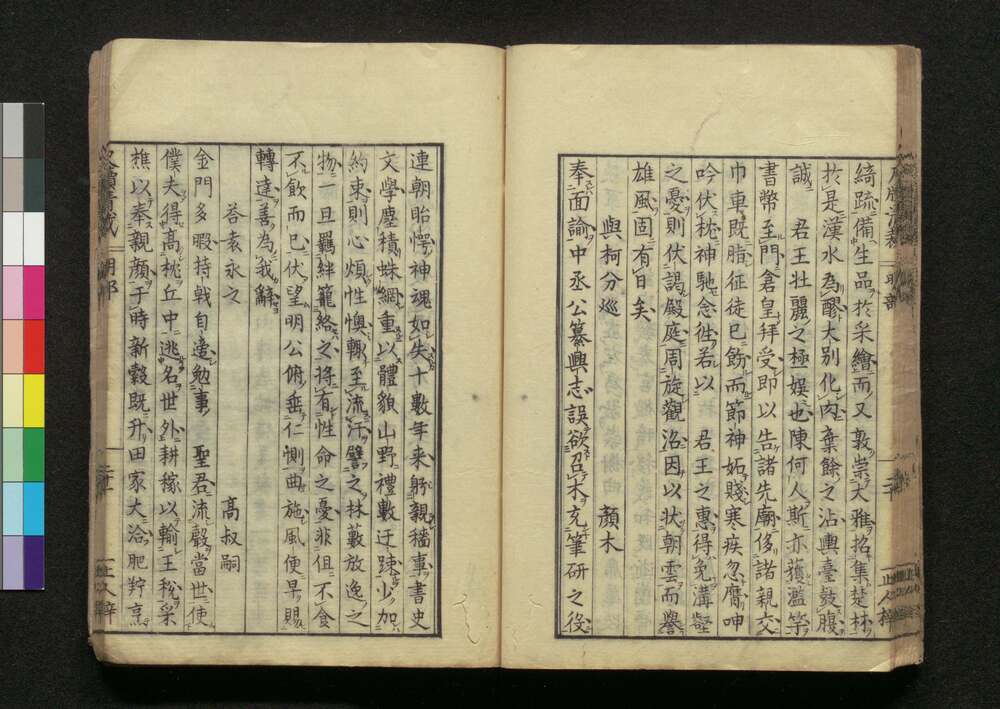 綺䟽備生品於采繪而又敦崇大雅招集楚材
於是漢水為醪大別化肉棄餘之沾輿臺鼓腹
誠　君王壮麗之極娯也陳何人斯亦獲濫竽
書幣至門倉皇拜受即以告諸先廟侈諸親交
巾車既脂征徒已飭而節神妬賤寒疾忽膺呻
吟伏枕神馳念徃若以　君王之惠得免溝壑
之憂則伏謁殿庭周旋觀洛因以状朝雲而譽
雄風固有日矣
與柯分巡　顏木
奉面諭中丞公纂輿志誤欲召木充筆研之後
連朝眙愕神魂如失十數年来躬親穡事書史
文學塵積蛛網重以體貌山野禮數迂踈少加
約束則心煩性懊輙至流汗譬之林藪放逸之
物一旦羈絆籠絡之将有性命之憂非但不食
不飲而已伏望明公俯垂仁惻曲施風便早賜
轉達善為我辭
荅袁永之　高叔嗣
金門多暇持戟自遶勉事　聖君流聲當世使
僕夫得高枕丘中逃名世外耕稼以輸王稅采
樵以奉親顏于時新穀既升田家大洽肥羜烹
明部